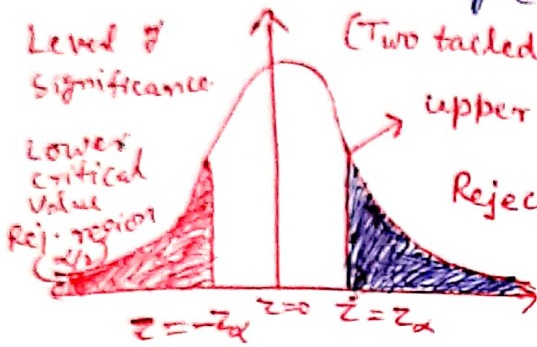 Level of
significance
(Two tailed
upper
Lower
critical
value
Rejec
Rej. region
α/2
z=-zα
z=0
z=zα